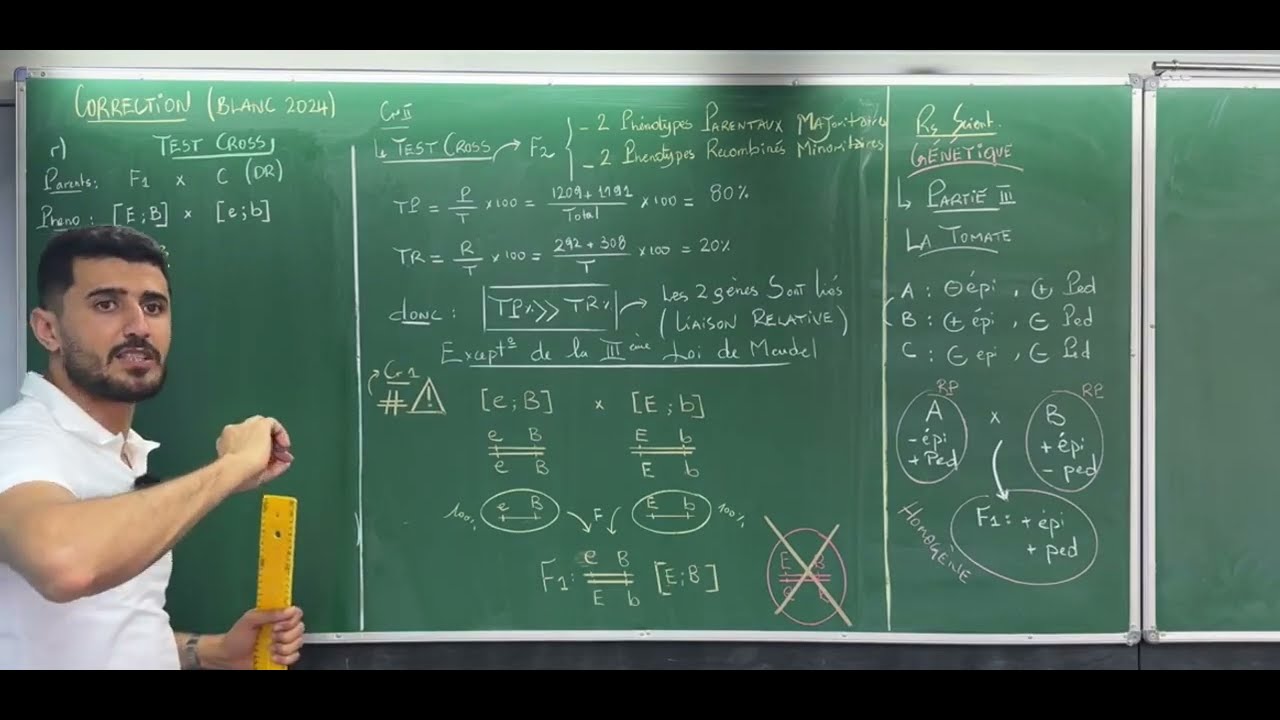 CORRECTION (BLANC 2024)
TEST CROSS
Parents: F1 x C (DR)
Pheno: [E;B] x [e;b]
Cr II
TEST CROSS → F2
- 2 Phénotypes PARENTAUX Majoritaires
- 2 Phenotypes Recombinés Minoritaires
TP = P/T x100 = 1209+1191/Total x100 = 80%
TR = R/T x100 = 292+308/T x100 = 20%
donc: TP% >> TR% → Les 2 gènes Sont liés
(LIAISON RELATIVE)
Except° de la III ème Loi de Mendel
Cr 1
# !
[e;B] x [E;b]
e B E b
e B E b
100% e B F E b 100%
F1: e B [E;B]
E b
E B
Rs Scient.
GÉNÉTIQUE
PARTIE III
LA TOMATE
A: ⊖ épi, ⊕ Ped
B: ⊕ épi, ⊖ Ped
C: ⊖ epi, ⊖ Ped
RP RP
A x B
- épi + épi
+ Ped - ped
HOMOGÈNE
F1: + épi
+ ped